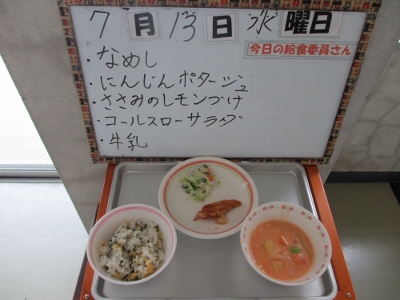 7月13日水曜日
今日の給食委員さん
・なめし
・にんじんポタージュ
・ささみのレモンづけ
・コールスローサラダ
・牛乳